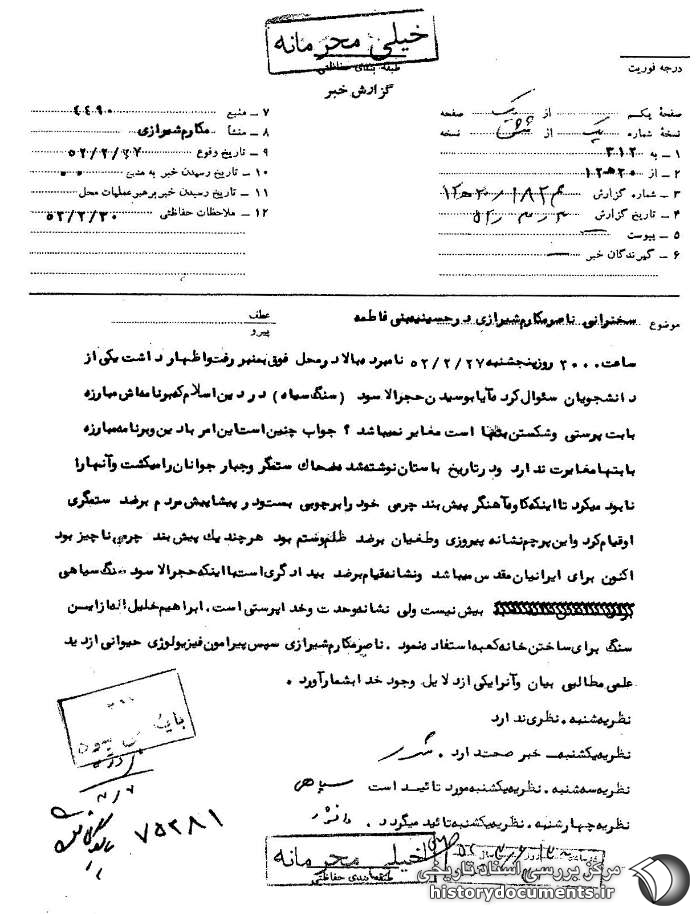 خیلی محرمانه
طبقه بندی حفاظتی
گزارش خبر
درجه فوریت
صفحهٔ یکم از یک صفحه
نسخهٔ شماره یک از شش نسخه
۱ ـ به ۳۱۲
۲ ـ از ۲۰ه۱۲
۳ ـ شماره گزارش
۴ ـ تاریخ گزارش
۵ ـ پیوست
۶ ـ گیرندگان خبر
۷ ـ منبع ۴۴۹۰
۸ ـ منشأ مکارم شیرازی
۹ ـ تاریخ وقوع ۵۲/۲/۲۷
۱۰ ـ تاریخ رسیدن خبر به منبع ۰۰
۱۱ ـ تاریخ رسیدن خبر برهبر عملیات محل
۱۲ ـ ملاحظات حفاظتی ۵۲/۲/۳۰
موضوع سخنرانی ناصر مکارم شیرازی در حسینیه بنی فاطمه
عطف
پیرو
ساعت ۲۰۰۰ روز پنجشنبه ۵۲/۲/۲۷ نامبرده بالا در محل فوق بمنبر رفت و اظهار داشت یکی از
دانشجویان سئوال کرده آیا بوسیدن حجرالاسود (سنگ سیاه) در دین اسلام که برنامه‌اش مبارزه
با بت پرستی و شکستن بتها است مغایر نمیباشد ؟ جواب چنین است این امر با دین و برنامه مبارزه
با بتها مغایرت ندارد و در تاریخ باستان نوشته شده ضحاک ستمگر و جبار جوانان را میکشت و آنها را
نابود میکرد تا اینکه کاوه آهنگر پیش بند چرمی خود را بر چوبی بست و در پیشاپیش مردم برضد ستمگری
او قیام کرد و این پرچم نشانه پیروزی و طغیان برضد ظلم و ستم بود هر چند یک پیش بند چرمی ناچیز بود
اکنون برای ایرانیان مقدس میباشد و نشانه قیام برضد بیدادگری است با اینکه حجرالاسود سنگ سیاهی
بیش نیست ولی نشانه وحدت و خداپرستی است . ابراهیم خلیل اله از این
سنگ برای ساختن خانه کعبه استفاده نمود . ناصر مکارم شیرازی سپس پیرامون فیزیولوژی حیوانی از دید
علمی مطالبی بیان و آنرا یکی از دلایل وجود خدا بشمار آورد .
نظریه شنبه . نظری ندارد
نظریه یکشنبه ـ خبر صحت دارد .
نظریه سه شنبه . نظریه یکشنبه مورد تائید است
نظریه چهارشنبه . نظریه یکشنبه تائید میگردد .
۷۵۳۸۱
خیلی محرمانه
طبقه بندی حفاظتی
مرکز بررسی اسناد تاریخی
historydocuments.ir